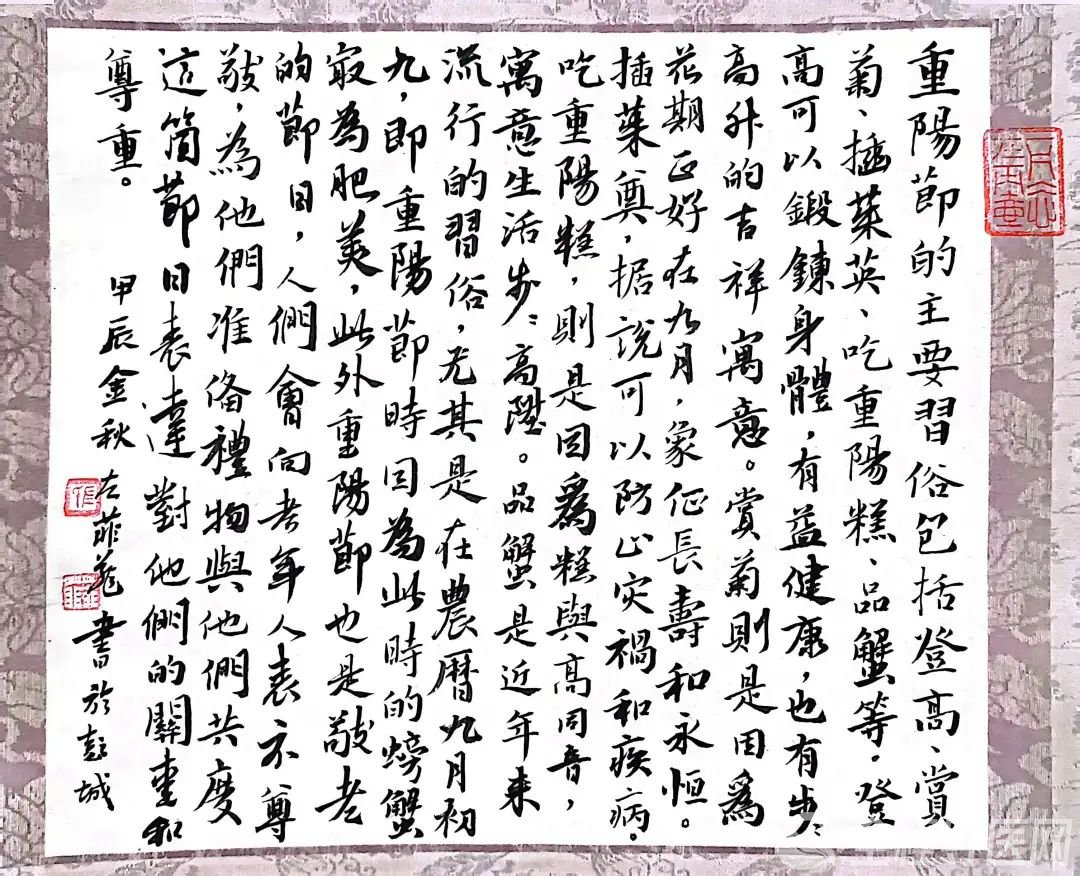 重陽節的主要習俗包括登高、賞
菊、插茱萸、吃重陽糕、品蟹等。登
高可以鍛鍊身體，有益健康，也有步々
高升的吉祥寓意。賞菊則是因爲
花期正好在九月，象征長壽和永恒。
插茱萸，据説可以防止灾禍和疾病。
吃重陽糕，則是因爲糕與高同音，
寓意生活步々高陞。品蟹是近年来
流行的習俗，尤其是在農曆九月初
九，即重陽節時因為此時的螃蟹
最為肥美，此外重陽節也是敬老
的節日，人們會向老年人表示尊
敬，為他們准备禮物與他們共度
這箇節日表達對他們的關愛和
尊重。
甲辰金秋 左菲 書於彭城